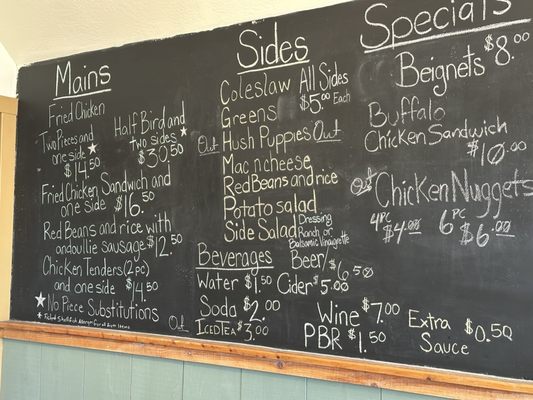 Mains
Fried Chicken
Two Pieces and
one side
$14.50
Half Bird and
two sides
$30.50
Fried Chicken Sandwich and
one side $16.50
Red Beans and rice with
andoullie sausage $12.50
Chicken Tenders (2pc)
and one side $14.50
No Piece Substitutions
Out
Sides
Coleslaw
All Sides
$5.00 Each
Greens
Out Hush Puppies Out
Mac n cheese
Red Beans and rice
Potato salad
Side Salad
Dressing
Ranch or
Balsamic Vinaigrette
Beverages
Water $1.50
Soda $2.00
Iced Tea $3.00
Beer $6.50
Cider $5.00
Wine $7.00
PBR $1.50
Specials
Beignets $8.00
Buffalo
Chicken Sandwich
$10.00
Out Chicken Nuggets
4PC $4.00 6PC $6.00
Extra
Sauce $0.50